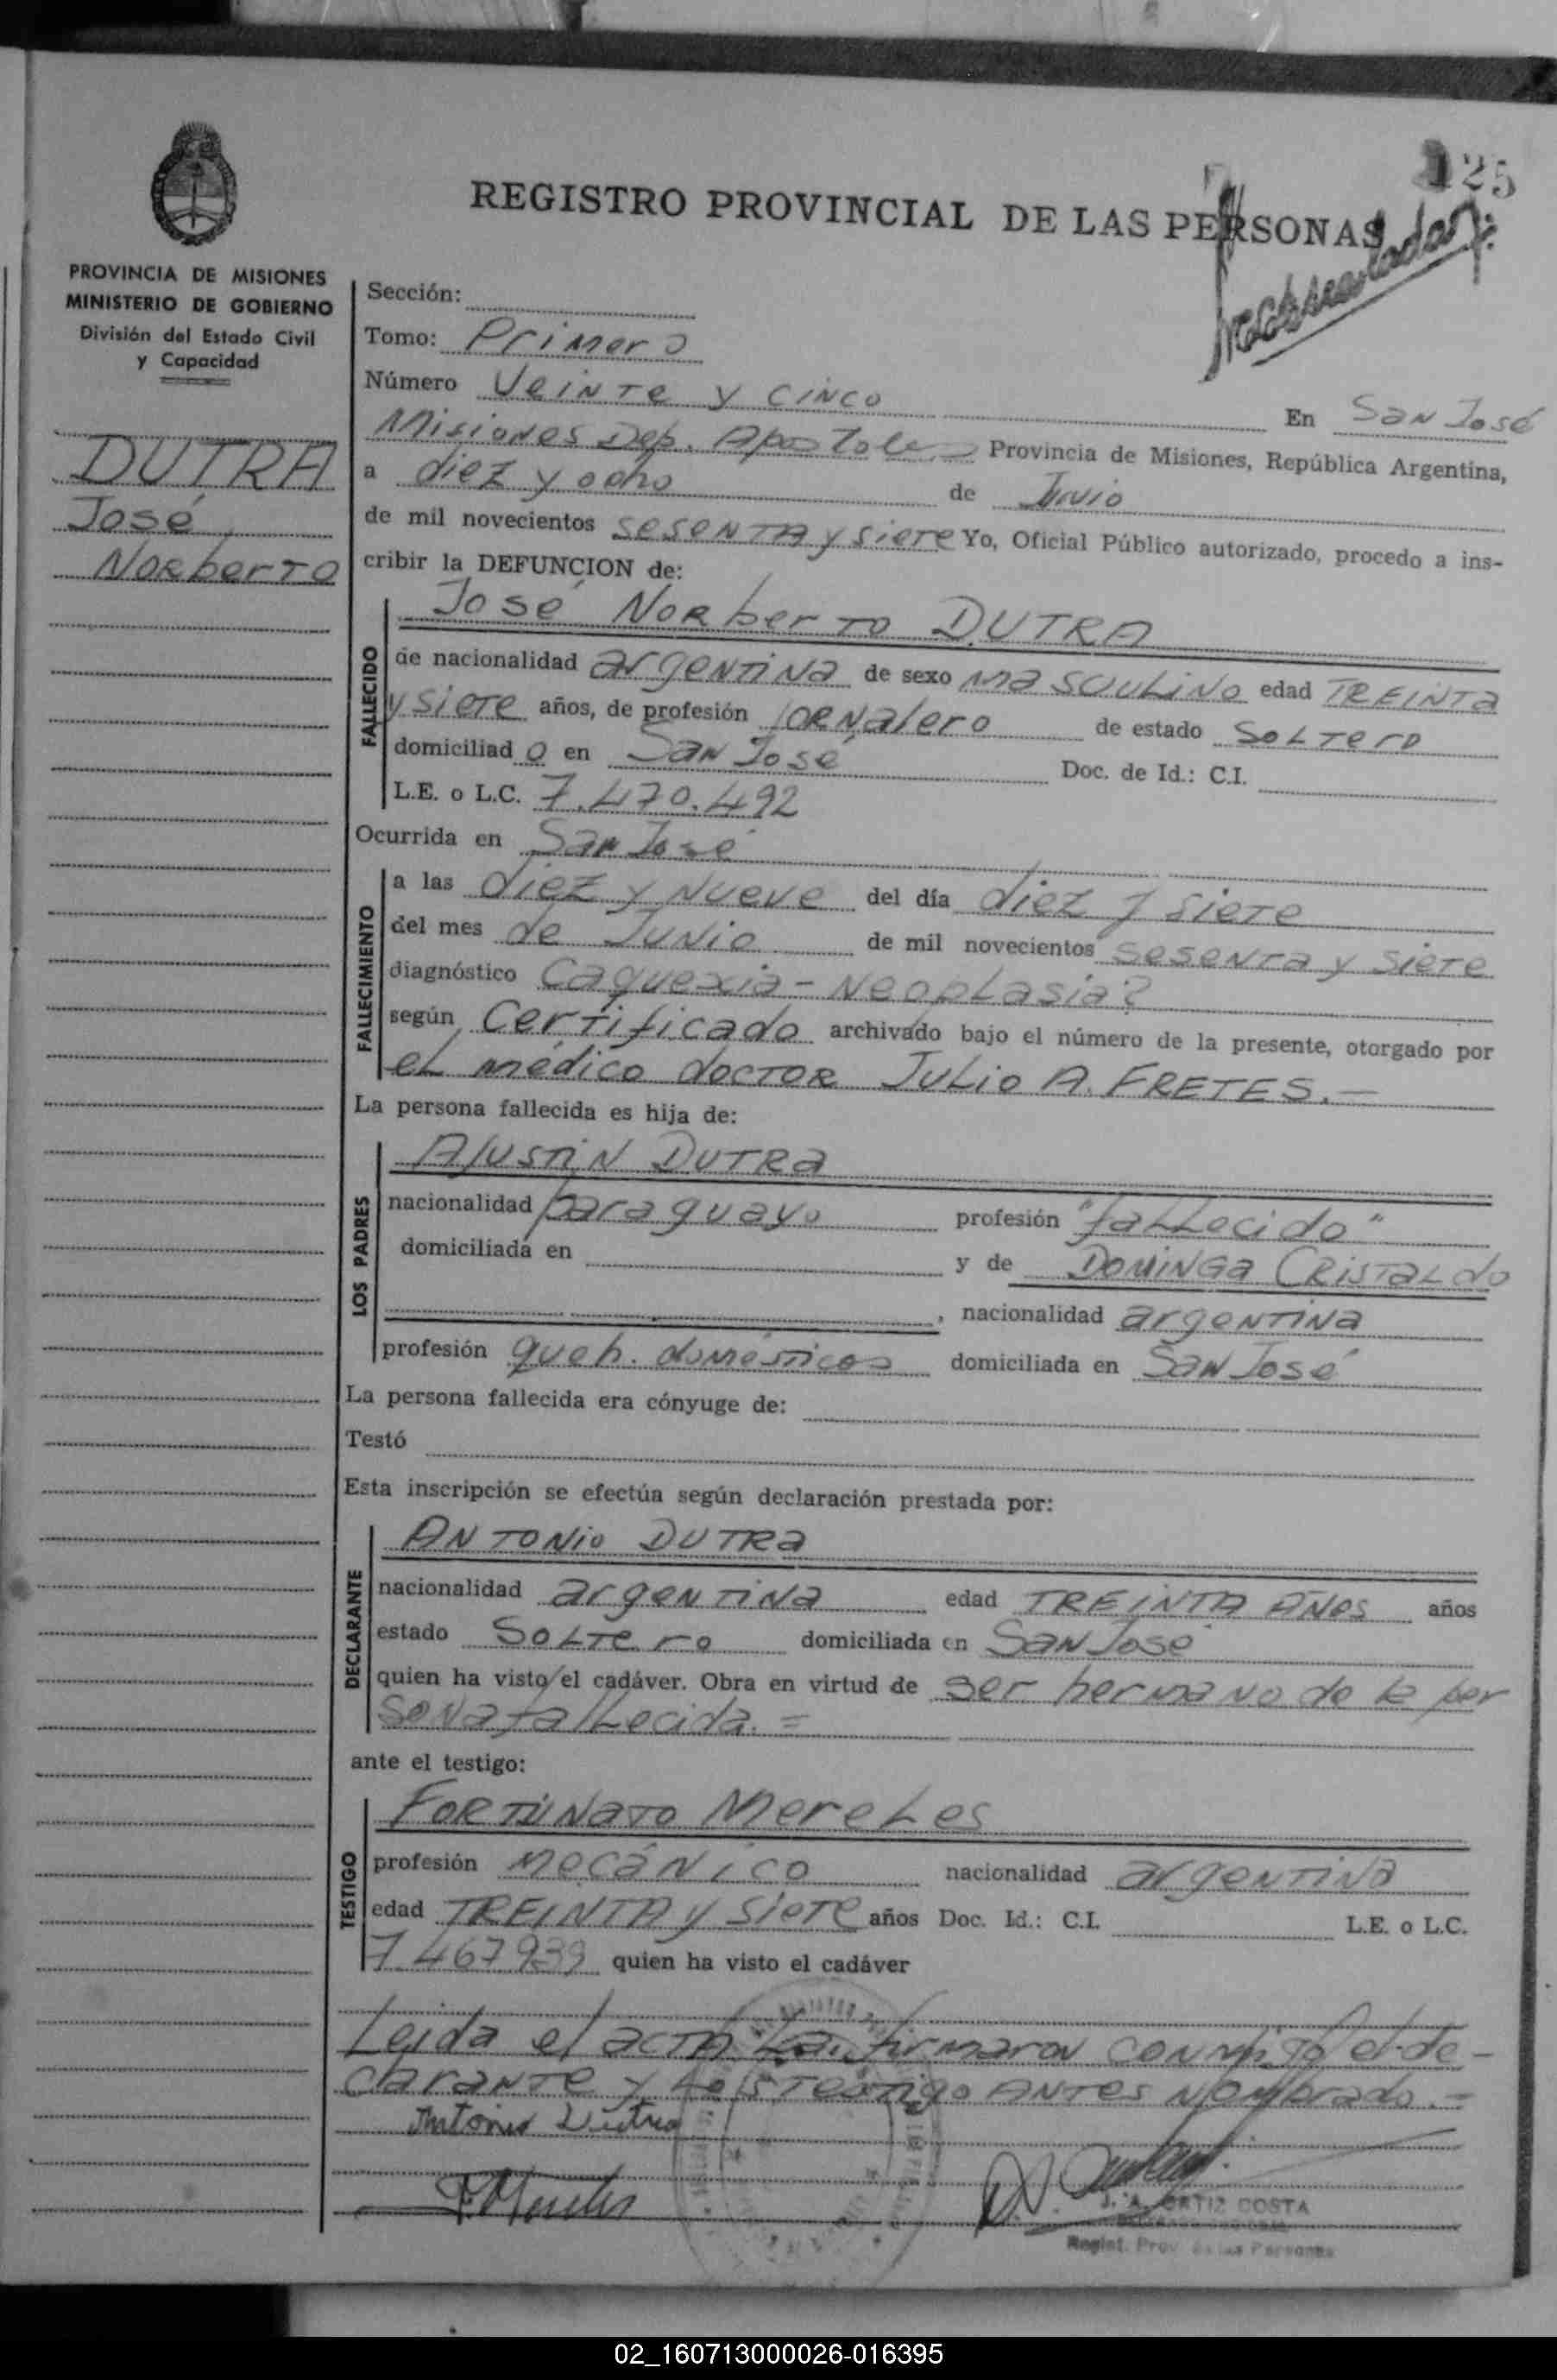 125
REGISTRO PROVINCIAL DE LAS PERSONAS
PROVINCIA DE MISIONES
MINISTERIO DE GOBIERNO
División del Estado Civil
y Capacidad
DUTRA
José
Norberto
Sección:
Tomo: Primero
Número Veinte y cinco En San José
Misiones Dep. Apostoles Provincia de Misiones, República Argentina,
a diez y ocho de Junio
de mil novecientos sesenta y siete Yo, Oficial Público autorizado, procedo a ins-
cribir la DEFUNCION de:
FALLECIDO
José Norberto DUTRA
de nacionalidad argentina de sexo masculino edad treinta
y siete años, de profesión jornalero de estado soltero
domiciliad o en San José Doc. de Id.: C.I.
L.E. o L.C. 7.470.492
Ocurrida en San José
FALLECIMIENTO
a las diez y nueve del día diez y siete
del mes de Junio de mil novecientos sesenta y siete
diagnóstico Caquexia - Neoplasia?
según Certificado archivado bajo el número de la presente, otorgado por
el médico doctor Julio A. FRETES.-
La persona fallecida es hija de:
LOS PADRES
Ajustin Dutra
nacionalidad paraguayo profesión "fallecido"
domiciliada en y de Dominga Cristaldo
, nacionalidad argentina
profesión queh. domésticos domiciliada en San José
La persona fallecida era cónyuge de:
Testó
Esta inscripción se efectúa según declaración prestada por:
DECLARANTE
Antonio Dutra
nacionalidad argentina edad treinta años años
estado soltero domiciliada en San José
quien ha visto el cadáver. Obra en virtud de ser hermano de la per
sona fallecida. =
ante el testigo:
TESTIGO
Fortunato Mereles
profesión mecánico nacionalidad argentina
edad treinta y siete años Doc. Id.: C.I. L.E. o L.C.
7.467939 quien ha visto el cadáver
Leida el acta la firmaron conmigo el de-
clarante y testigo antes nombrado.=
Antonio Dutra
F. Mereles
J. A. ORTIZ COSTA
Regist. Prov. de las Personas
02_160713000026-016395